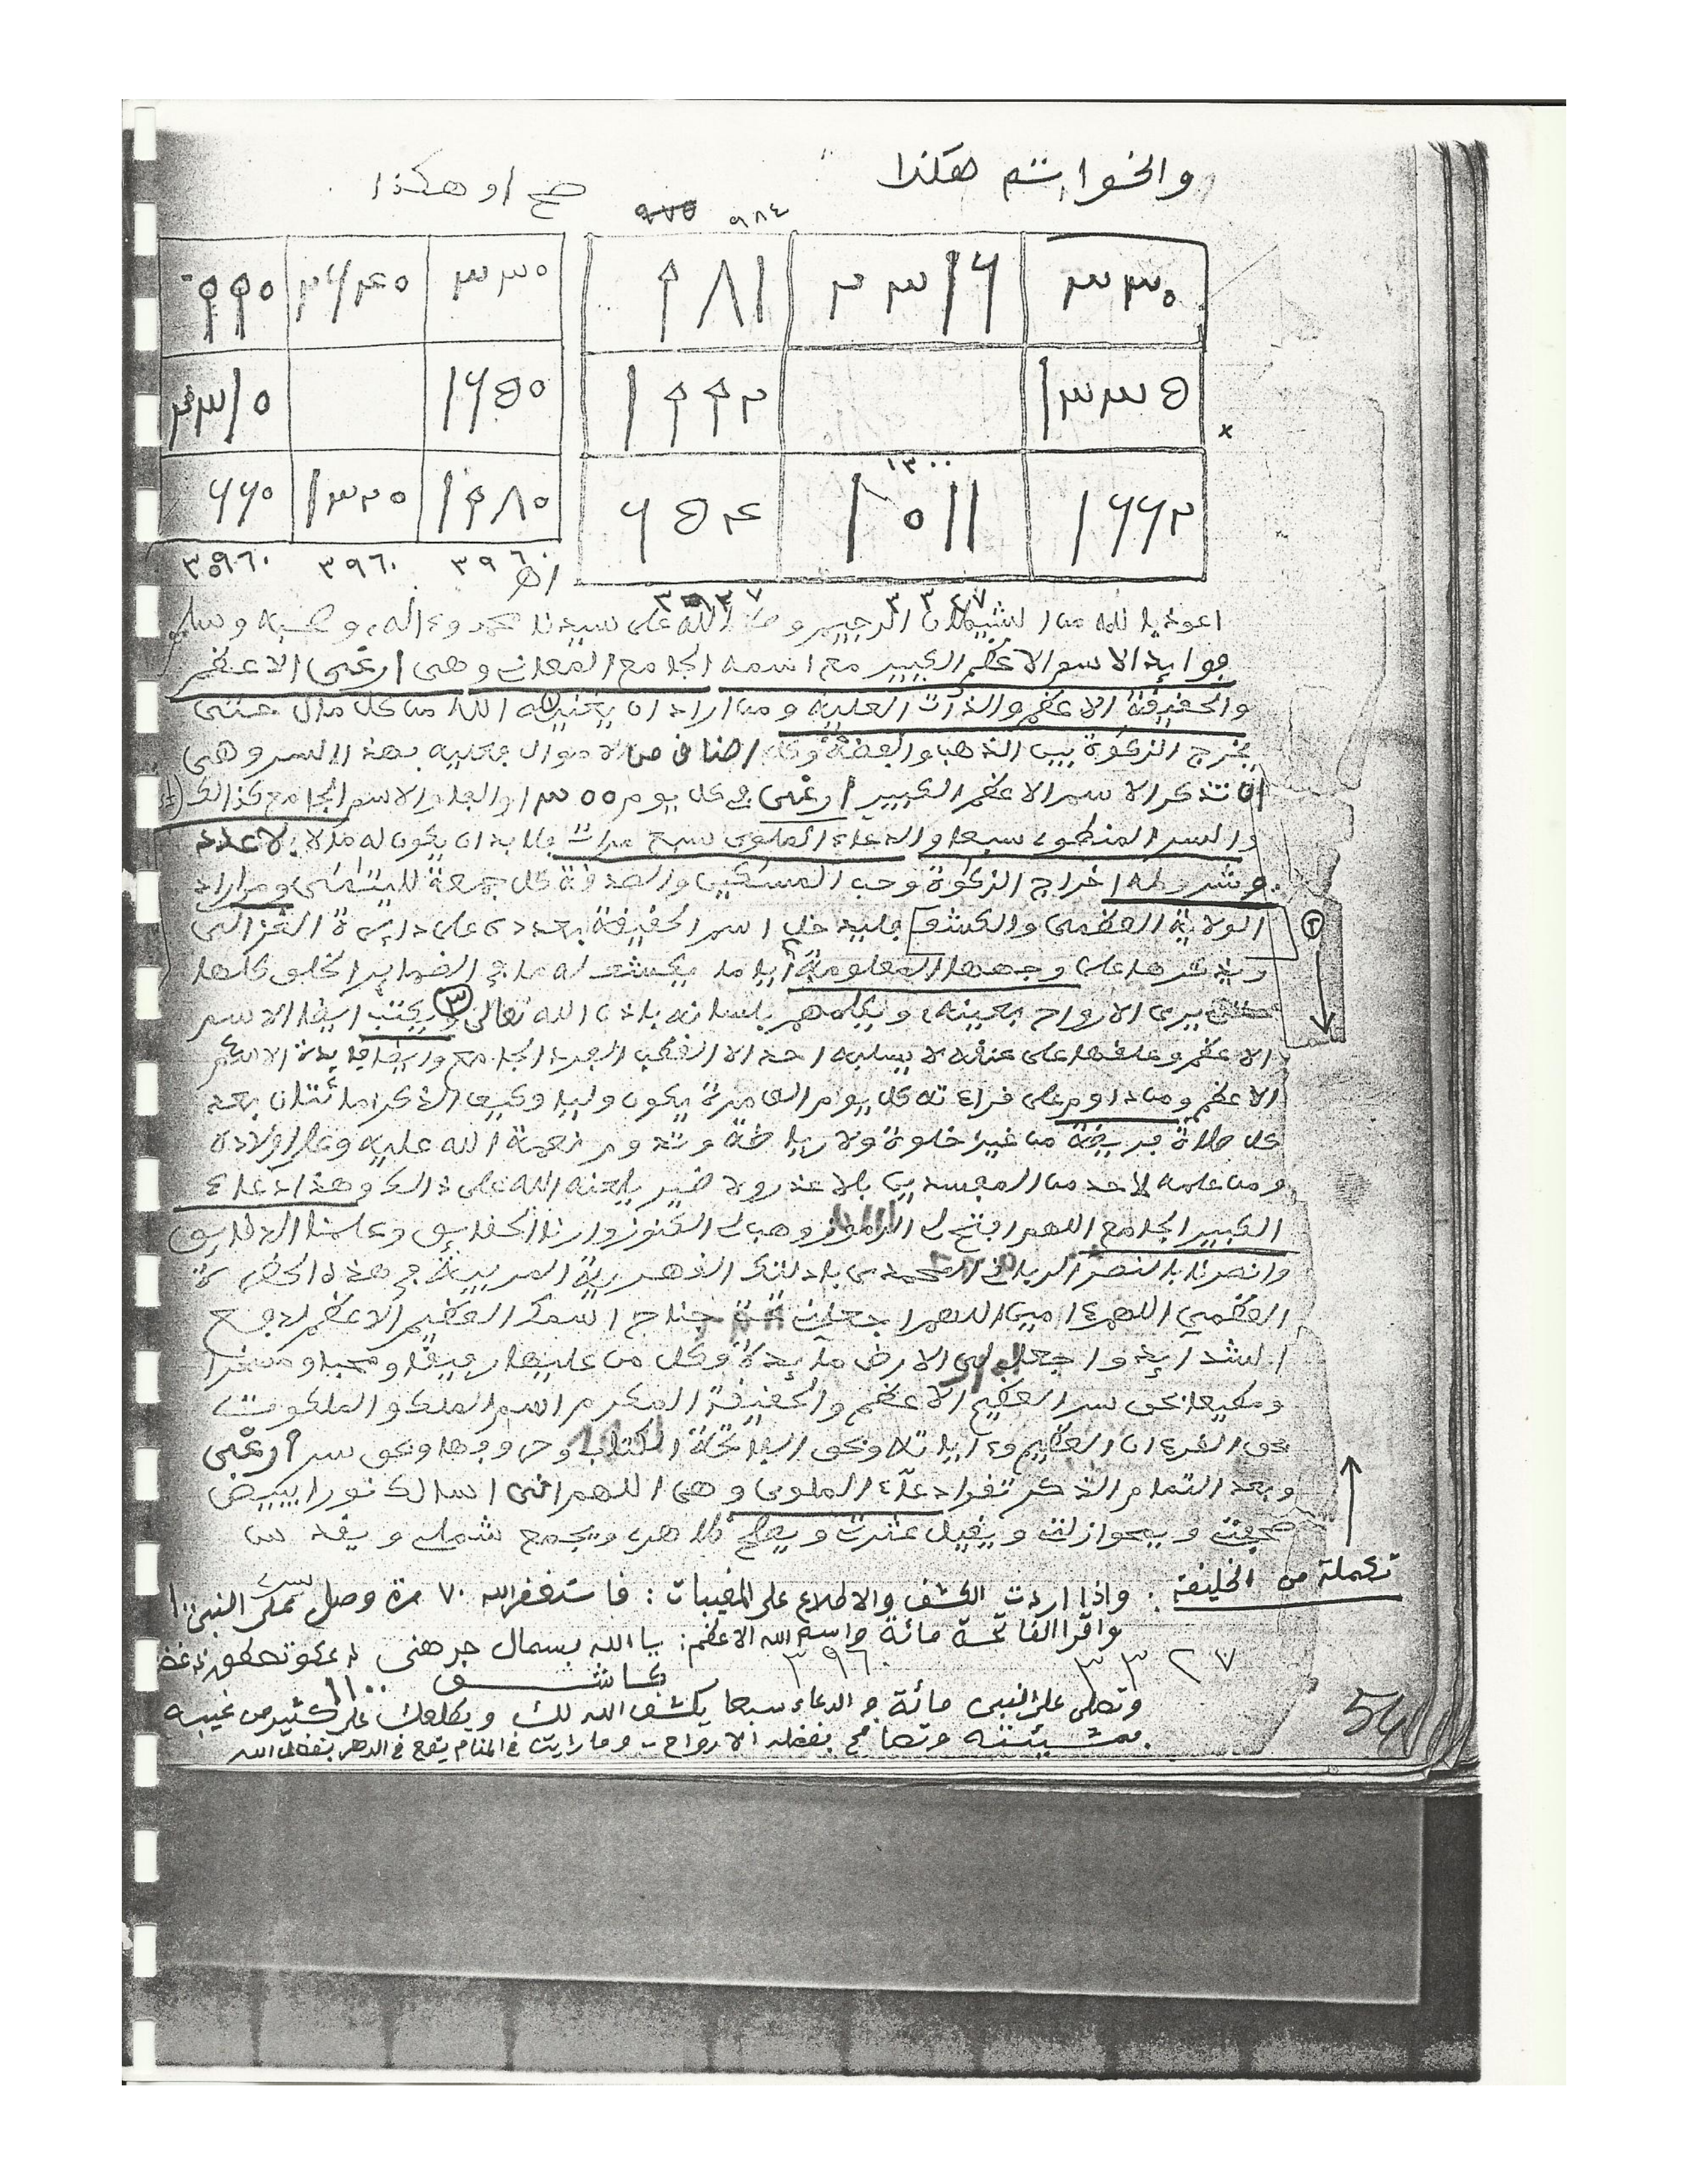 والخواتم هكذا
صح او هكذا
٩٧٥ ٩٨٤
٣٣٠ ٢٣١٦ ٩٨١
٣٣٠ ٢٦٤٠ ٩٩٠
١٣٣٥ ١٩٩٢
١٦٥٠ ٢٣١٠
١٦٦٢ ١٠١١ ١٣٠٠ ٦٥٤
١٩٨٠ ١٣٢٠ ٦٦٠
٣٩٦٠ ٣٩٦٠ ٣٩٦٠
اعوذ بالله من الشيطان الرجيم وصلى الله على سيدنا محمد وءاله وصحبه وسلم
فوايد الاسم الاعظم الكبير مع اسمه الجامع المعان وهى ارغى الاعظم
والحقيقة الاعظم والذات العلية ومن اراد ان يغنيه الله من كل مال حتى
يخرج الزكوة بين الذهب والفضة وكل اصناف من الاموال فعليه بهذا السر وهى
ان تذكر الاسم الاعظم الكبير ارغى فى كل يوم والاسم الجامع كذالك
والسر المنطوى سبعا والدعاء الملوى سبع مرات فلا بد ان يكون له مالا بلا عدد
وشروطه اخراج الزكوة وحب المسكين والصدقة كل جمعة لليتمى ومن اراد
الولاية العظمى والكشف فليدخل اسم الحقيقة بعدده على دايرة الغزالى
ويذكرها على وجهها المعلومة ايا ما يكشف له ما فى الضماير الخلق كلها
حتى يرى الارواح بعينه ويكلمهم بلسانه باذن الله تعالى ٣ ويكتب ايضا الاسم
الاعظم وعلقها على عنقه لا يسلبه احد الا القطب الفرد الجامع وايضا فايدة الاسم
الاعظم ومن داوم على قراءته كل يوم الف مرة يكون وليا وكيف الذكر مائتان بعد
كل صلاة فريضة من غير خلوة ولا رياضة وتدوم نعمة الله عليه وعلى اولاده
ومن علمه لاحد من المفسدين بلا عذر ولا ضير يلعنه الله على ذالك وهذا دعاء
الكبير الجامع اللهم افتح لى الرموز وهب لى الكنوز وارنا الحقايق وعلمنا الدقايق
وانصرنا بالنصر الربانى المحمدى
العظمى اللهم ءامين اللهم اجعلنى تحت جناح اسمك العظيم الاعظم لدفع
الشدايد واجعل لى الارض مايدة وكل من عليها رفيقا ومحبا ومسخرا
ومطيعا بحق سر العظيم الاعظم والحقيقة المكرم اسم الملك والملكوت
بحق القرءان العظيم وءاياته وبحق الفاتحة الكتاب وحروفها وبحق سر ارغى
وبعد التمام الذكر تقرا دعاء الملوى وهى اللهم انى اسالك نورا يبيض
صحيفتى ويمحو زلتى ويقيل عثرتى ويصلح ظاهرى ويجمع شملى ويقدس
تكملة من الخليفة : واذا اردت الكشف والاطلاع على المغيبات : فاستغفر الله ٧٠ مرة وصل على النبى
واقرا الفاتحة مائة واسم الله الاعظم : يا الله
٣٣٢٧ ٣٩٦٠ كاشف ١١٠٠
وتصلى على النبى مائة والدعاء سبعا يكشف الله لك ويطلعك على كثير من غيبه
بمشيئته وتصافح بفضله الارواح - وما رايت فى المنام يقع فى الدهر بفضل الله
54